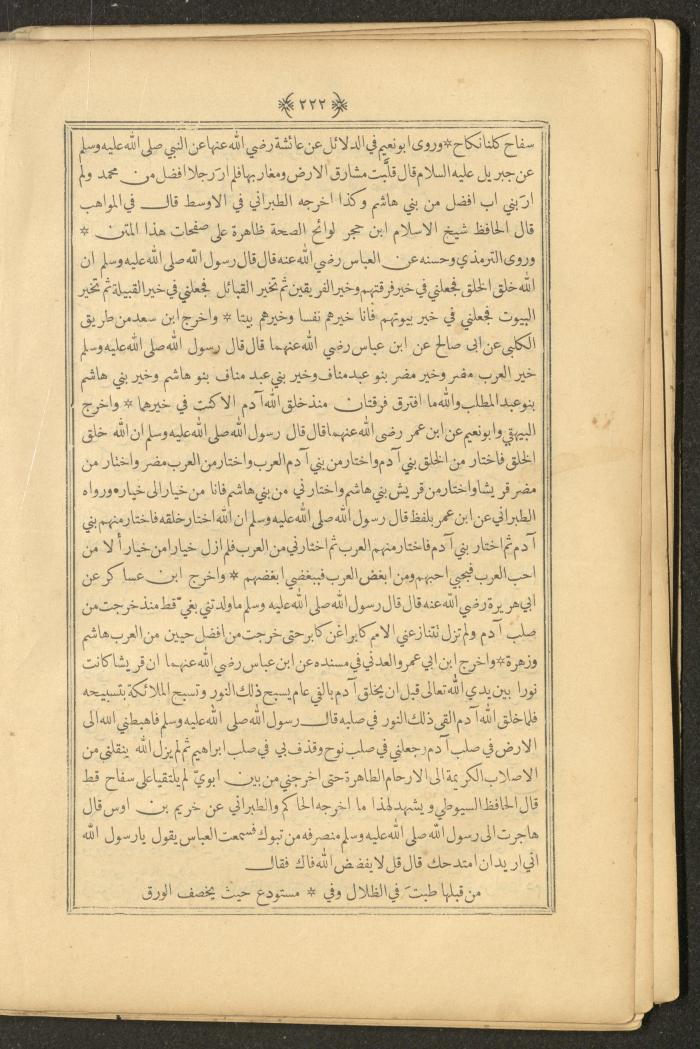 ٢٢٢
سفاح كلنا نكاح * وروى ابو نعيم في الدلائل عن عائشة رضي الله عنها عن النبي صلى الله عليه وسلم
عن جبريل عليه السلام قال قلَّبت مشارق الارض ومغاربها فلم ارَ رجلا افضل من محمد ولم
ارَ بني اب افضل من بني هاشم وكذا اخرجه الطبراني في الاوسط قال في المواهب
قال الحافظ شيخ الاسلام ابن حجر لوائح الصحة ظاهرة على صفحات هذا المتن *
وروى الترمذي وحسنه عن العباس رضي الله عنه قال قال رسول الله صلى الله عليه وسلم ان
الله خلق الخلق فجعلني في خير فرقتهم وخير الفريقين ثم تخير القبائل فجعلني في خير القبيلة ثم تخير
البيوت فجعلني في خير بيوتهم فانا خيرهم نفسا وخيرهم بيتا * واخرج ابن سعد من طريق
الكلبى عن ابى صالح عن ابن عباس رضي الله عنهما قال قال رسول الله صلى الله عليه وسلم
خير العرب مضر وخير مضر بنو عبد مناف وخير بني عبد مناف بنو هاشم وخير بني هاشم
بنو عبد المطلب والله ما افترق فرقتان منذ خلق الله آدم الا كنت في خيرهما * واخرج
البيهقي وابو نعيم عن ابن عمر رضى الله عنهما قال قال رسول الله صلى الله عليه وسلم ان الله خلق
الخلق فاختار من الخلق بني آدم واختار من بني آدم العرب واختار من العرب مضر واختار من
مضر قريشا واختار من قريش بني هاشم واختارني من بني هاشم فانا من خيار الى خيار * ورواه
الطبراني عن ابن عمر بلفظ قال رسول الله صلى الله عليه وسلم ان الله اختار خلقه فاختار منهم بني
آدم ثم اختار بني آدم فاختار منهم العرب ثم اختارني من العرب فلم ازل خيارا من خيار ألا من
احب العرب فبحبي احبهم ومن ابغض العرب فببغضي ابغضهم * واخرج ابن عساكر عن
ابي هريرة رضي الله عنه قال قال رسول الله صلى الله عليه وسلم ما ولدتني بغيّ قط منذ خرجت من
صلب آدم ولم تزل تتنازعني الامم كابرا عن كابر حتى خرجت من افضل حيين من العرب هاشم
وزهرة * واخرج ابن ابي عمرو العدني في مسنده عن ابن عباس رضي الله عنهما ان قريشا كانت
نورا بين يدي الله تعالى قبل ان يخلق آدم بالفي عام يسبح ذلك النور وتسبح الملائكة بتسبيحه
فلما خلق الله آدم القى ذلك النور في صلبه قال رسول الله صلى الله عليه وسلم فاهبطني الله الى
الارض في صلب آدم وجعلني في صلب نوح وقذف بي في صلب ابراهيم ثم لم يزل الله ينقلني من
الاصلاب الكريمة الى الارحام الطاهرة حتى اخرجني من بين ابويّ لم يلتقيا على سفاح قط
قال الحافظ السيوطي ويشهد لهذا ما اخرجه الحاكم والطبراني عن خريم بن اوس قال
هاجرت الى رسول الله صلى الله عليه وسلم منصرفه من تبوك فسمعت العباس يقول يا رسول الله
اني اريد ان امتدحك قال قل لا يفضض الله فاك فقال
من قبلها طبتَ في الظلال وفي * مستودع حيث يخصف الورق